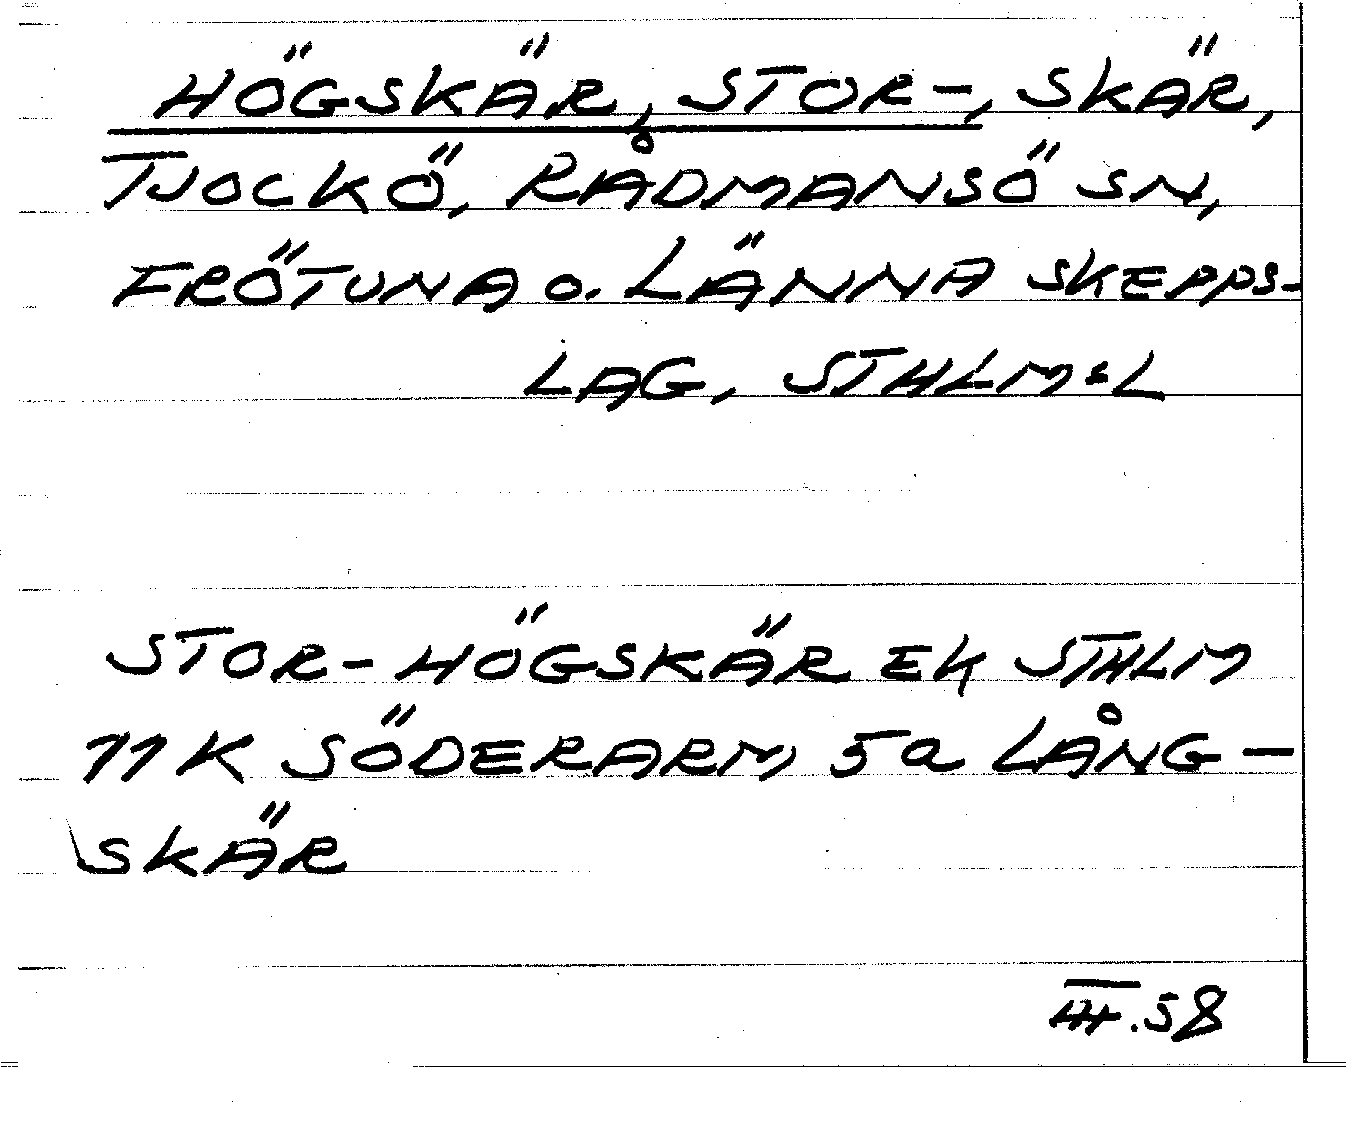 HÖGSKÄR, STOR-, SKÄR,
TJOCKÖ, RÅDMANSÖ SN,
FRÖTUNA o. LÄNNA SKEPPS-
LAG, STHLMSL
STOR-HÖGSKÄR EK STHLM
11K SÖDERARM 5a LÅNG-
SKÄR
III.58